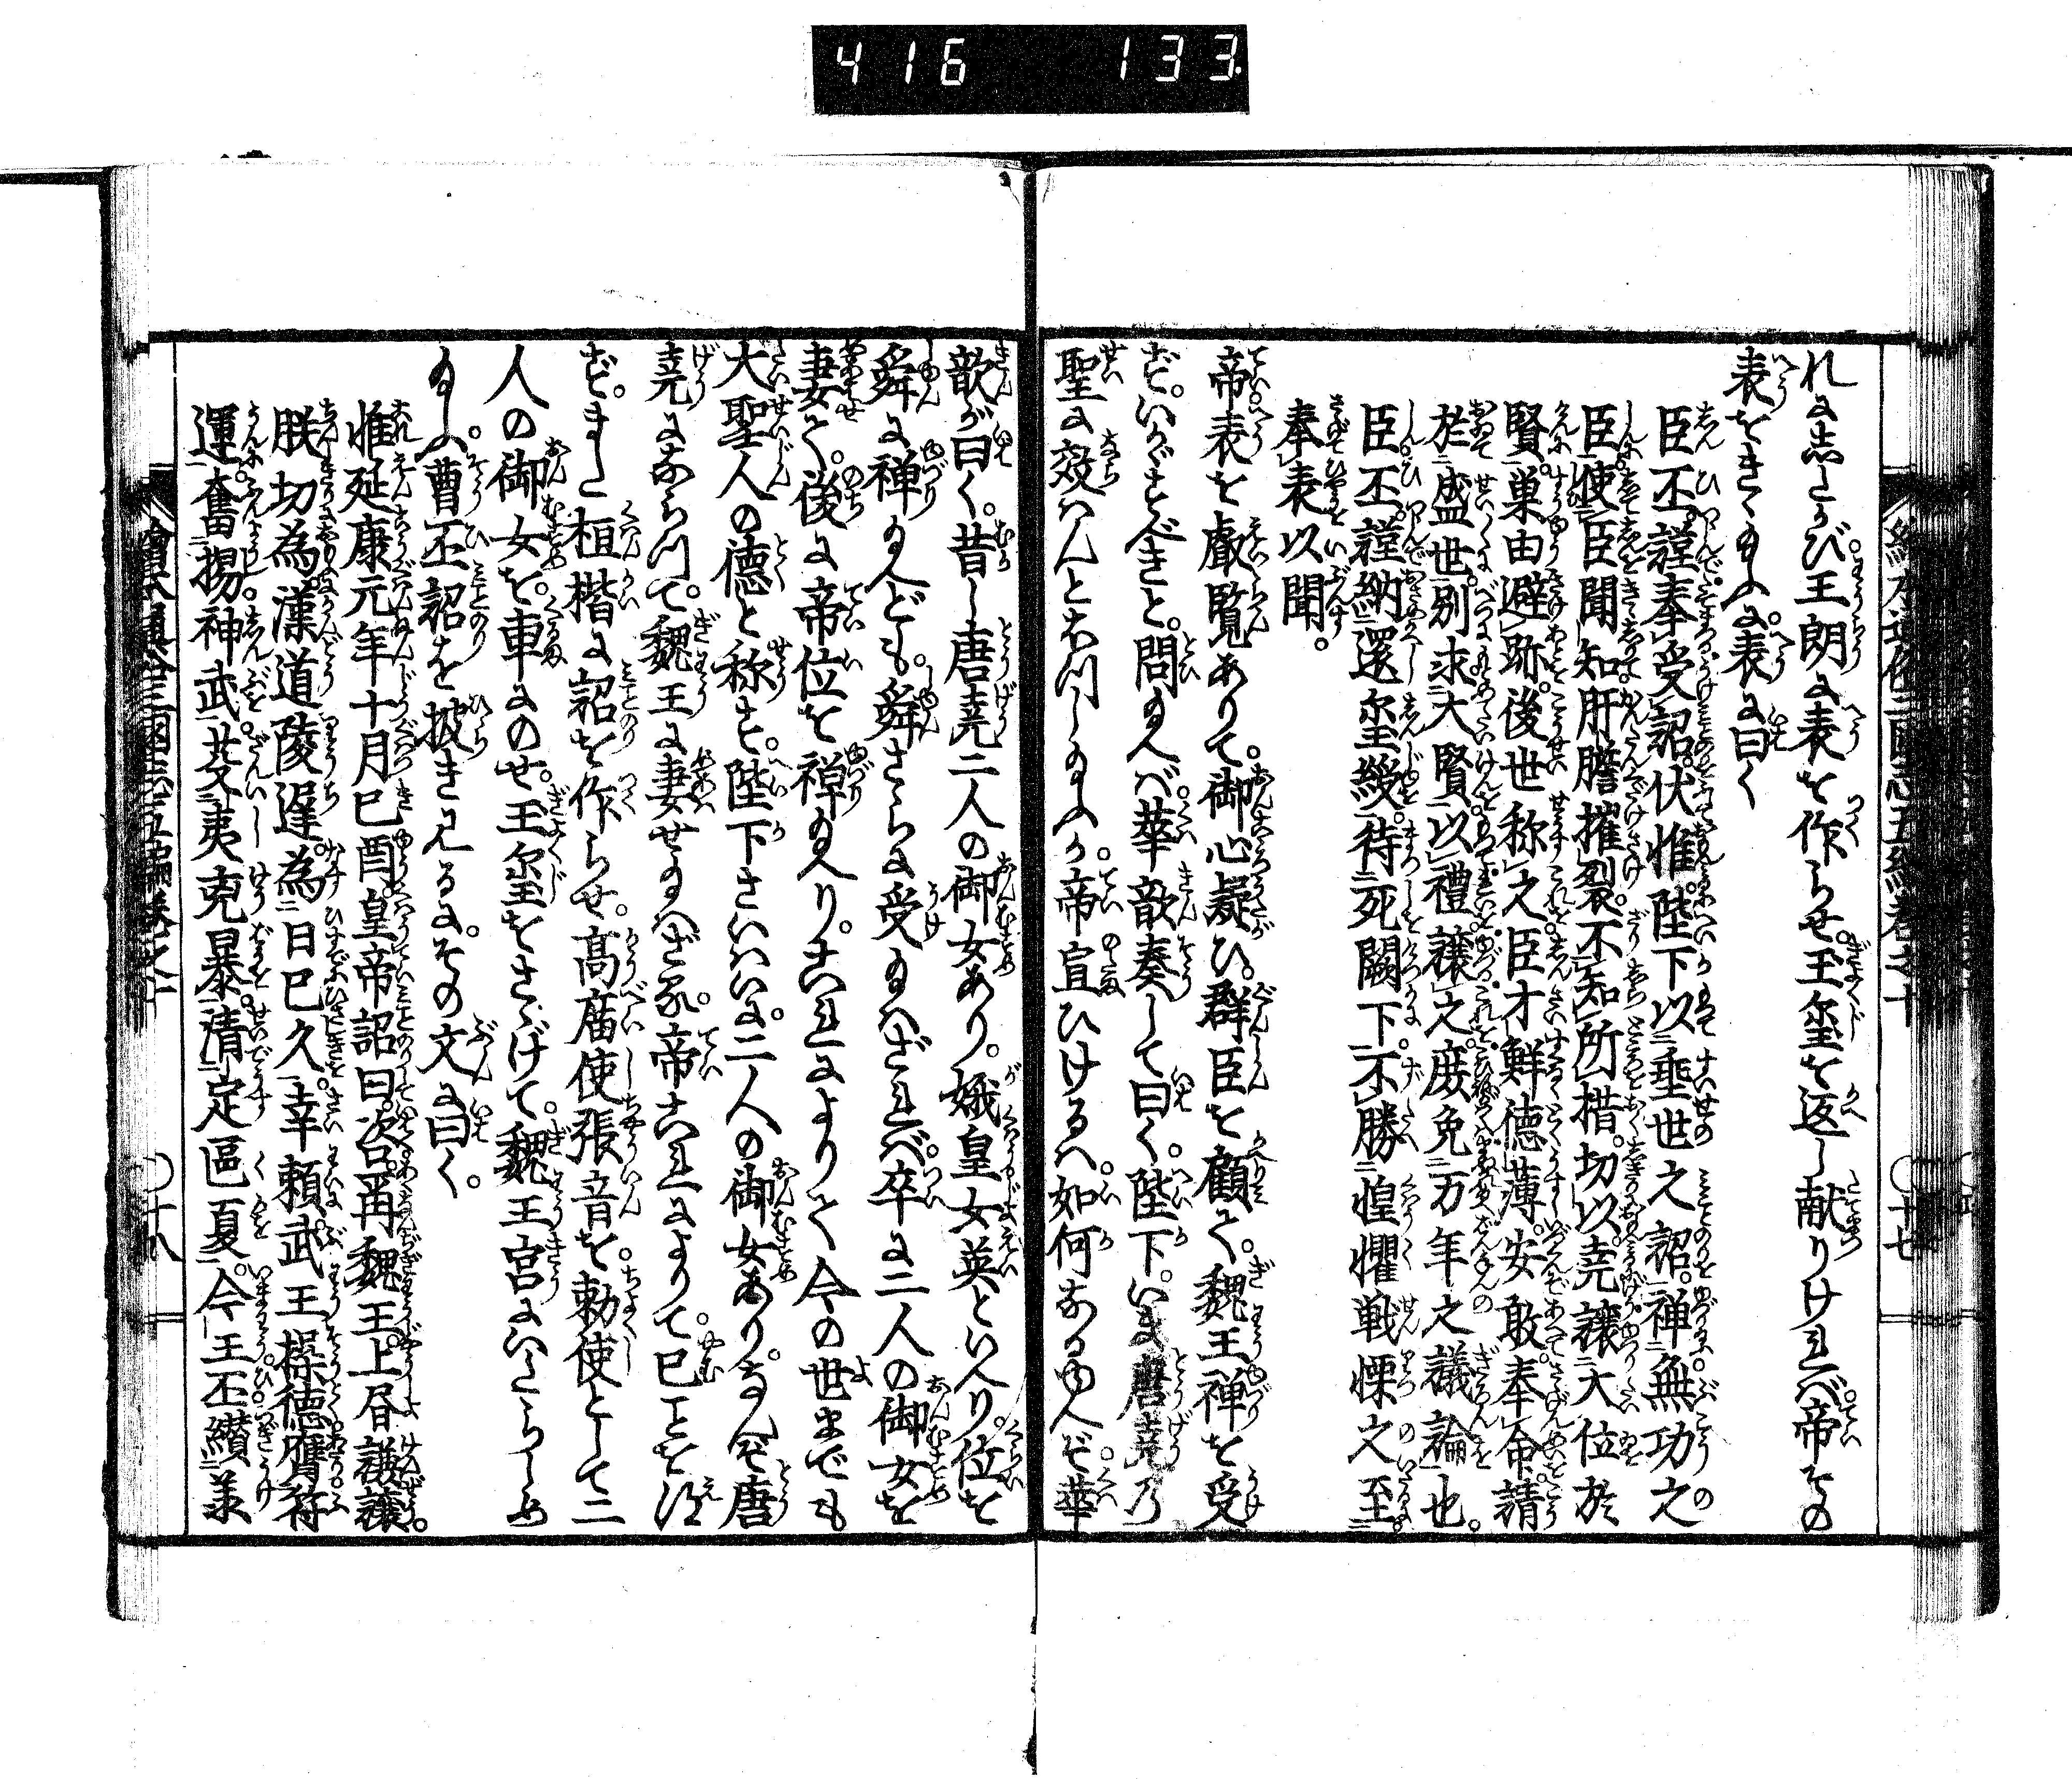 416 133.
れに志たがひ王朗に表を作らせ玉璽を返し献りければ帝その
表をきゝ玉ふに表に曰く
臣丕謹奉受詔伏惟陛下以垂世之詔禅無功之
臣使臣聞知肝膽摧裂不知所措切以堯譲大位於
賢巣由避跡後世称之臣才鮮徳薄安敢奉命請
於盛世別求大賢以禮譲之庶免万年之議論也
臣丕謹納還玺綬待死闕下不勝惶懼戦慄之至
奉表以聞
帝表を叡覧ありて御心疑ひ群臣を顧て魏王禅を受
ずいかゞすべきと問玉へば華歆奏して曰く陛下いま唐堯乃
聖に效はんとおぼし玉ふか帝宣ひけるハ如何なるゆへぞ華
歆が曰く昔し唐堯二人の御女あり娥皇女英といへり位を
舜に禅り玉へども舜さらに受玉ハざれバ卒に二人の御女を
妻せて後に帝位を禅り玉へりこれによりて今の世までも
大聖人の徳と称す陛下さいはいに二人の御女ありなんぞ唐
堯にならひて魏王に妻せ玉ハざる帝これによりて已ことを得
ずまた桓楷に詔を作らせ高廟使張音を勅使として二
人の御女を車にのせ玉璽をさゝげて魏王宮にいたらしめ
玉ふ曹丕詔を披き見るにその文に曰く
惟延康元年十月己酉皇帝詔曰咨再魏王上昬謙譲
朕切為漢道陵遅為日已久幸頼武王操徳膺符
運奮揚神武芟夷兇暴清定區夏今王丕纘羕
十七
十八